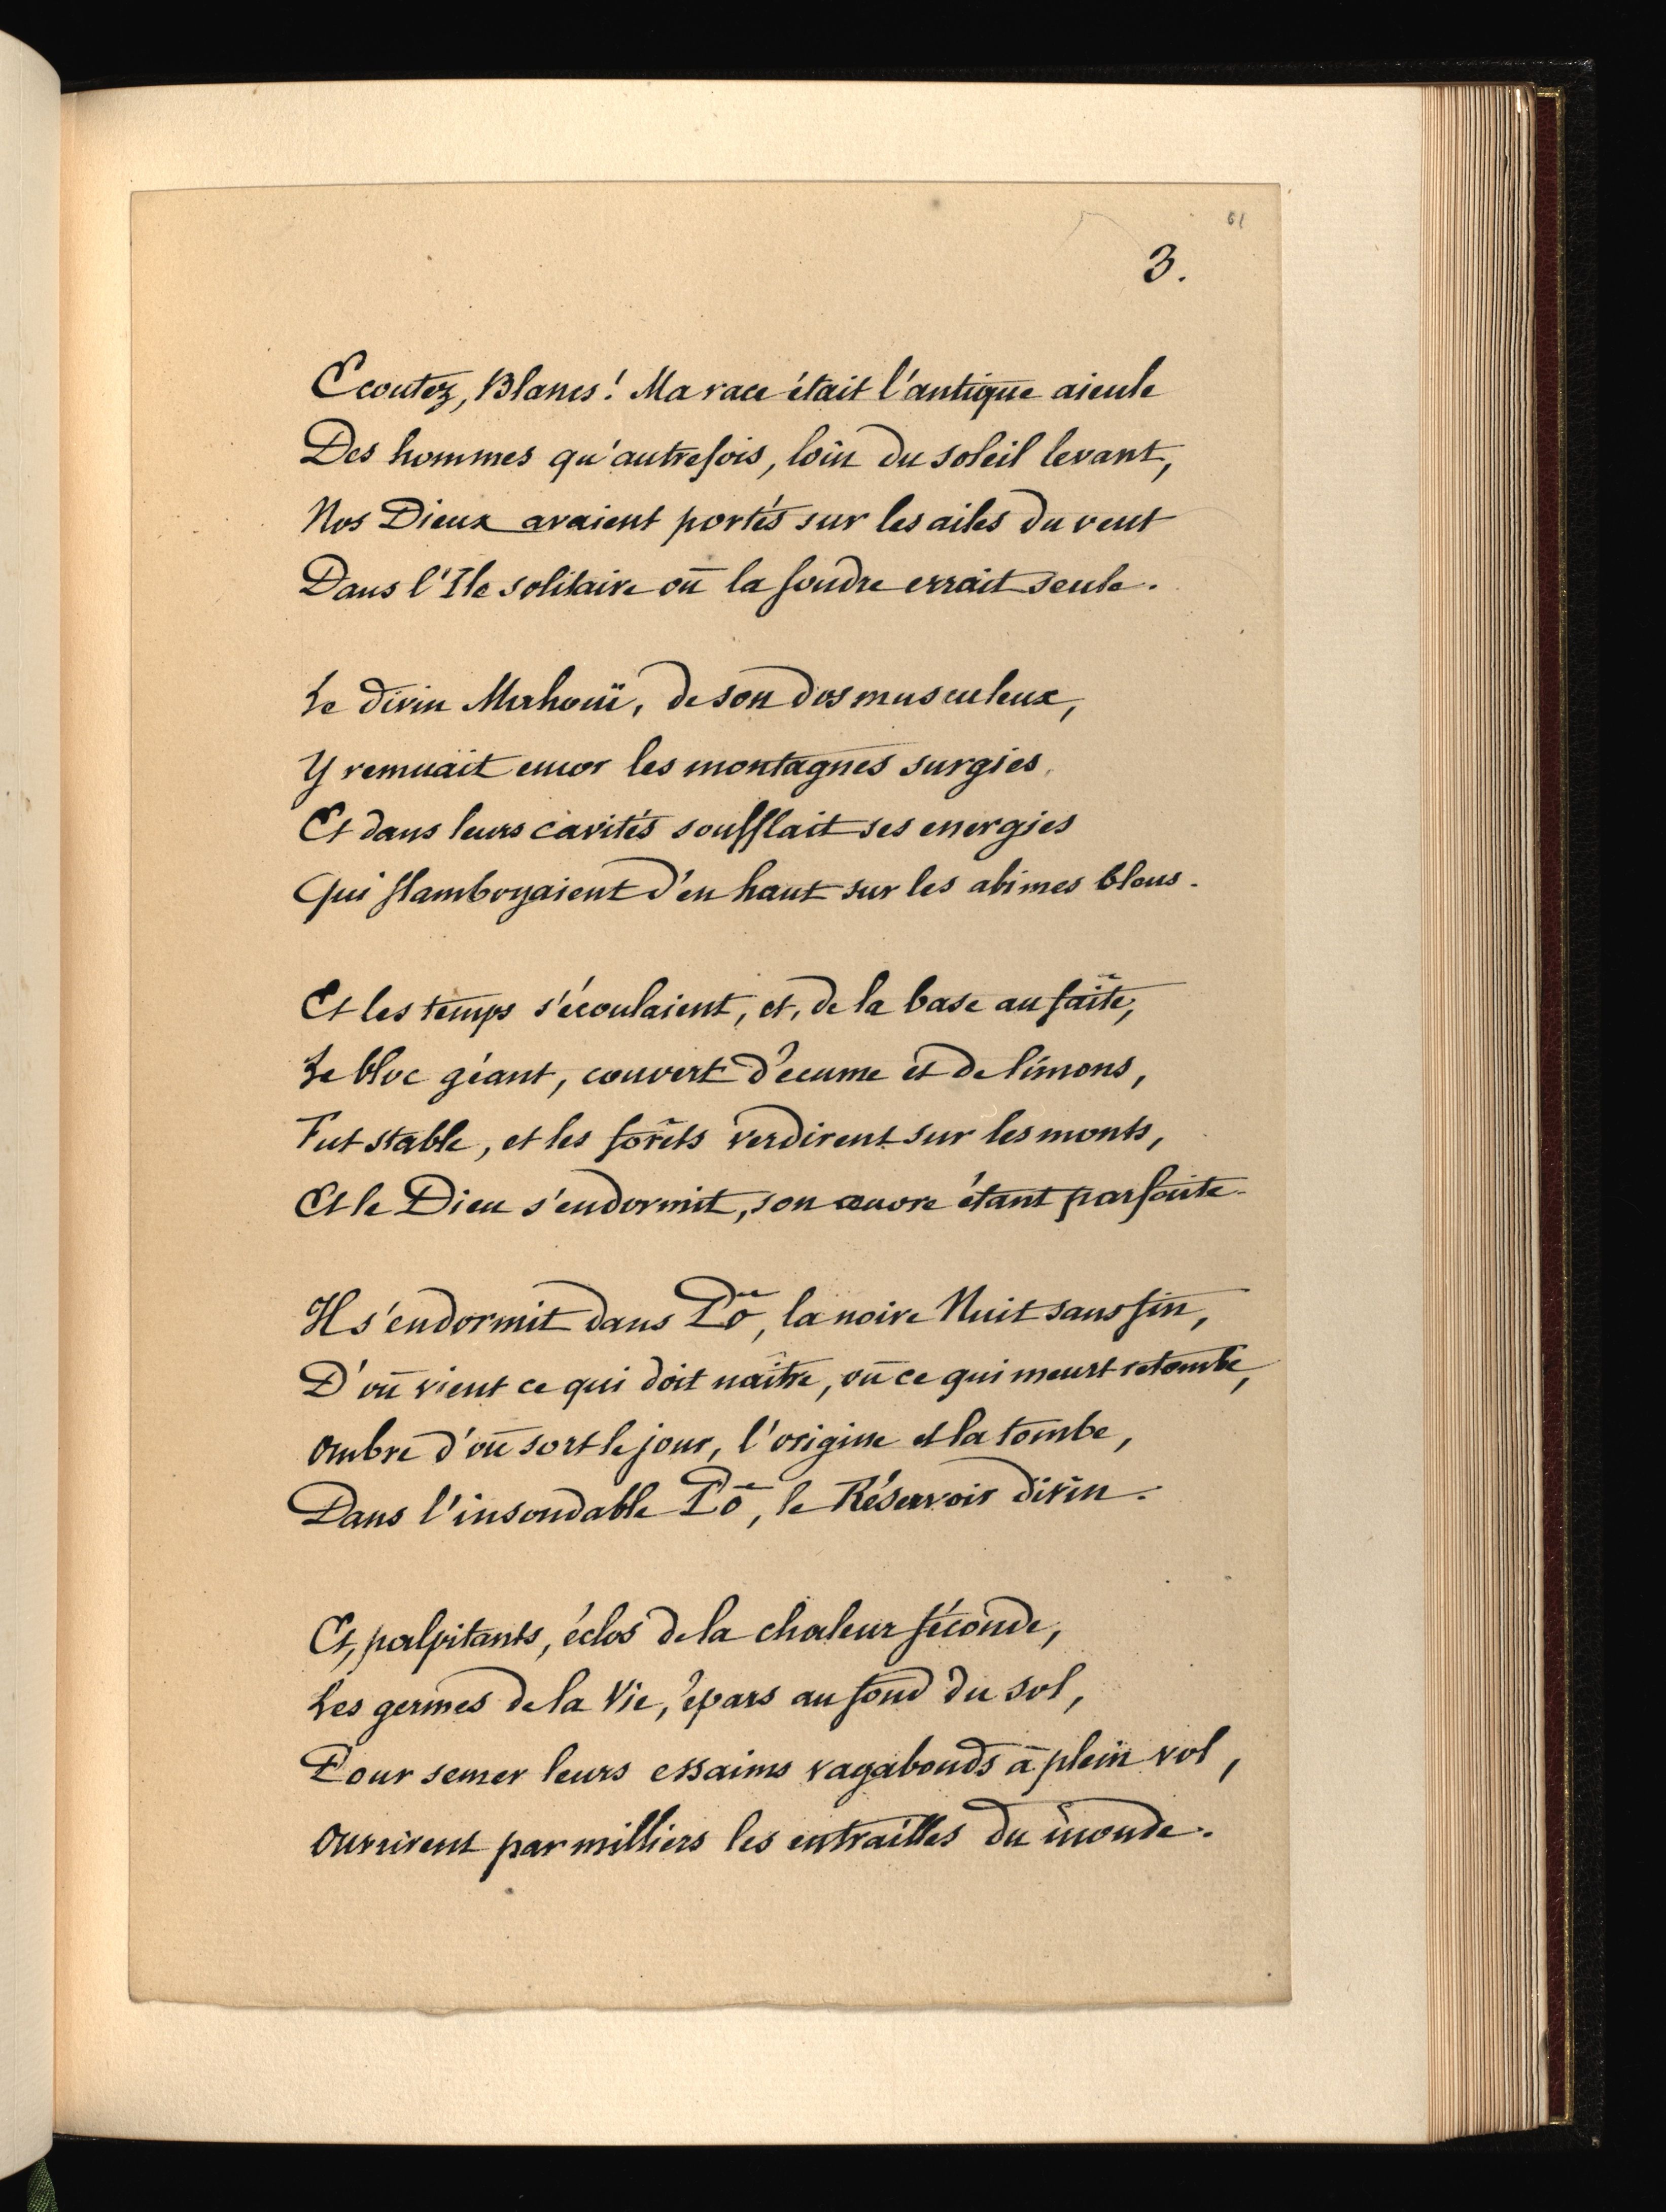 61
3.
Ecoutez, Blancs! Ma race était l'antique aieule
Des hommes qu'autrefois, loin du soleil levant,
Nos Dieux avaient portés sur les ailes du vent
Dans l'Ile solitaire où la foudre errait seule.
Le divin Mahouï, de son dos musculeux,
Y remuait encor les montagnes surgies,
Et dans leurs cavités soufflait ses energies
Qui flamboyaient d'en haut sur les abimes bleus.
Et les temps s'écoulaient, et, de la base au faîte,
Le bloc géant, couvert d'écume et de limons,
Fut stable, et les forêts verdirent sur les monts,
Et le Dieu s'endormit, son œuvre étant parfaite.
Il s'endormit dans Pô, la noire Nuit sans fin,
D'où vient ce qui doit naître, où ce qui meurt retombe,
Ombre d'où sort le jour, l'origine et la tombe,
Dans l'insondable Pô, le Réservoir divin.
Et, palpitants, éclos de la chaleur féconde,
Les germes de la Vie, épars au fond du sol,
Pour semer leurs essaims vagabonds à plein vol,
Ouvrirent par milliers les entrailles du monde.